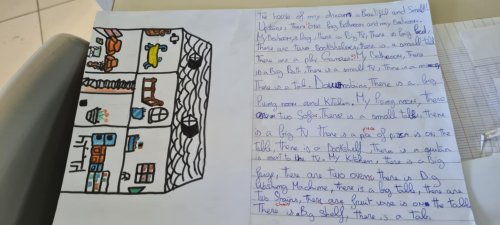 The house of my dreams a Beautiful and Small.
Upstairs, there are Big Bathroom and my Bedroom.
My Bedroom is big, there is Big TV, there is big bed,
there are two Bookshelves, there is a small table
There are a play Games. My Bathroom, there
is a Big Bath, there is a small TV, there is a
there is a table. Downstairs, there is a big
living room and Kitchen. My living room, there
are two Sofas, there is a small table, there
is a big TV. there is a pice of pizza is on the
table, there is a bookshelf, there is a
is next to the TV. My Kitchen, there is a Big
there are two ovens there is Big
Washing Machine, there is a big table, there are
two Chairs, there is on the table
There is Big shelf, there is a